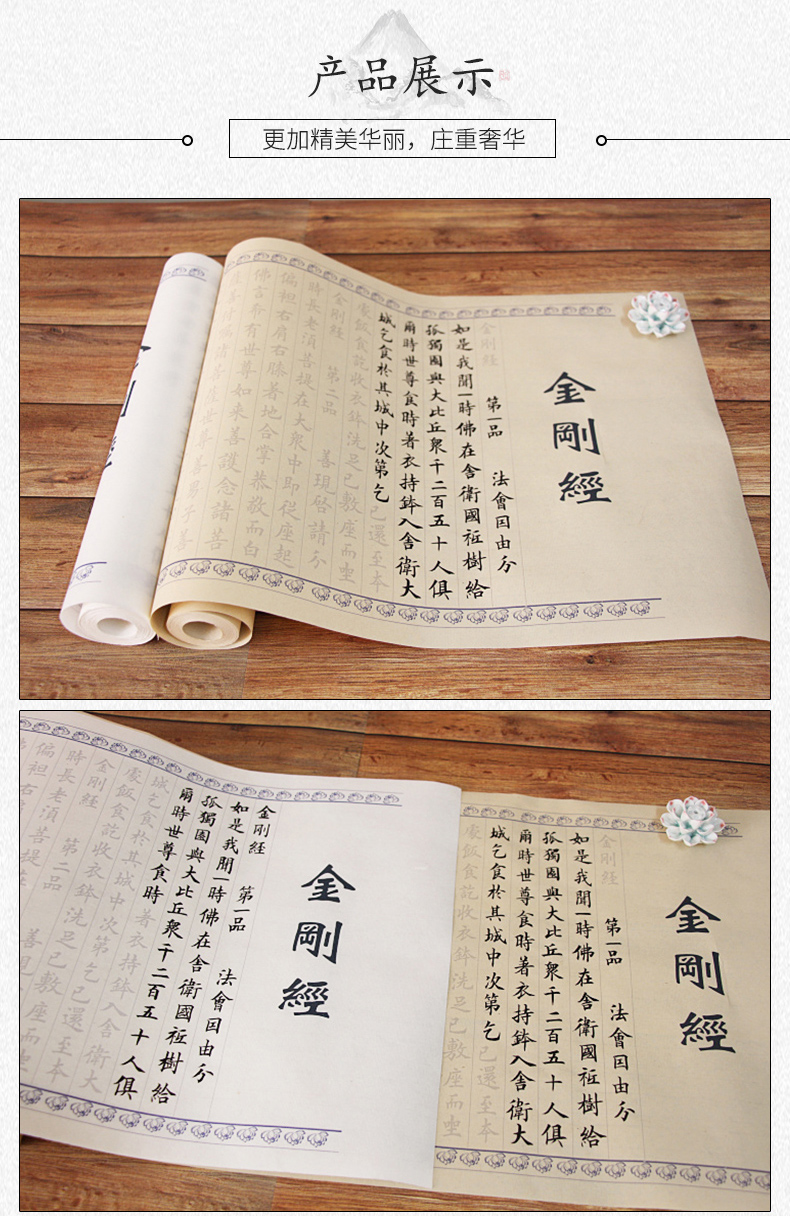 产品展示
更加精美华丽，庄重奢华
金剛經
金剛經
第一品 法會因由分
如是我聞一時佛在舍衛國祗樹給
孤獨園與大比丘衆千二百五十人俱
爾時世尊食時著衣持鉢入舍衛大
城乞食於其城中次第乞
已還至本
處飯食訖收衣鉢洗足已敷座而坐
金剛經 第二品 善現啓請分
時長老湏菩提在大衆中即從座起
偏袒右肩右膝著地合掌恭敬而白
佛言希有世尊如來善護念諸菩
金剛經
金剛經 第一品 法會因由分
如是我聞一時佛在舍衛國祗樹給
孤獨園與大比丘衆千二百五十人俱
爾時世尊食時
著衣持鉢入舍衛大
城乞食於其城中次第乞已還至本
處飯食訖收衣鉢洗足已敷座而坐
金剛經 第二品 善現
時長老湏菩提在
偏袒右
金剛經
金剛經
第一品 法會因由分
如是我聞一時佛在舍衛國祗樹給
孤獨園與大比丘衆千二百五十人俱
爾時世尊食時著衣持鉢入舍衛大
城乞食於其城中次第乞
已還至本
處飯食訖收衣鉢洗足已敷座而坐